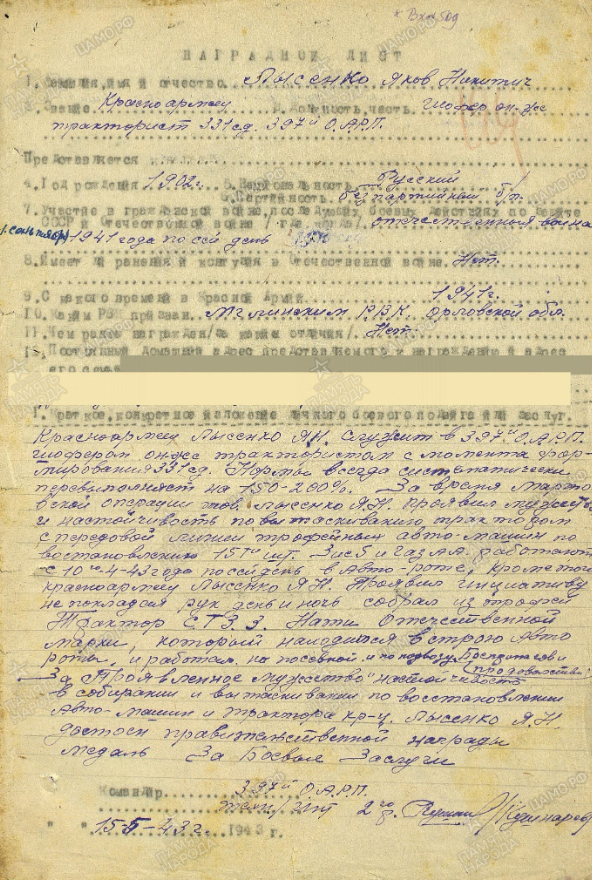 Вх 509
НАГРАДНОЙ ЛИСТ
1. Фамилия, имя и отчество. Лысенко Яков Никитич
2. звание Красноармеец 3. Должность, часть. Шофер он-же
тракторист 331 сд. 397й О.А.Р.П.
Представляется к
4. Год рождения 1902 г. 5. Национальность Русский
6. Партийность беспартийный б/п.
7. Участие в гражданской войне, последующих боевых действиях по защите
СССР и Отечественной войне отечественная война
1941 года по сей день
8. Имеет ли ранения и контузии в отечественной войне. Нет.
9. С какого времени в Красной Армии. 1941 г.
10. Каким РВК призван. Мглинским РВК. Орловской обл.
11. Чем ранее награжден/за какие отличия/. Нет
12. Постоянный домашний адрес представляемого к награждению и адрес
его семьи
1. Краткое, конкретное изложение личного боевого подвига или заслуг.
Красноармеец Лысенко Я.Н. Служит в 397й О.А.Р.П.
шофером он же трактористом с момента фор-
мирования 331 сд. Нормы всегда систематически
перевыполняет на 150-200%. За время марто
вской операции тов. Лысенко Я.Н. проявил мужество
и настойчивость по вытаскиванию трактором
с передовой линии трофейных авто-машин по
востановлению 15ти шт. Зис5 и ГазАА. работают
с 10го-4-43 года по сей день в Авто-роте, кроме того
красноармеец Лысенко Я.Н. Проявил инициативу
не покладая рук день и ночь собрал из трофей
Трактор С.Т.З. 3. Нати Отечественной
марки, который находится в строю Авто
роты, и работал на посевной и по подвозу Боеприпасов и
продовольствия
За Проявленное мужество настойчивость
в собирании и вытаскивании по востановлению
Авто-машин и трактора кр-ц. Лысенко Я.Н.
достоен правительственной награды
медаль За Боевые Заслуги
Командир. 397й О.А.Р.П.
2го р.
15-5-43 г. 1943 г.